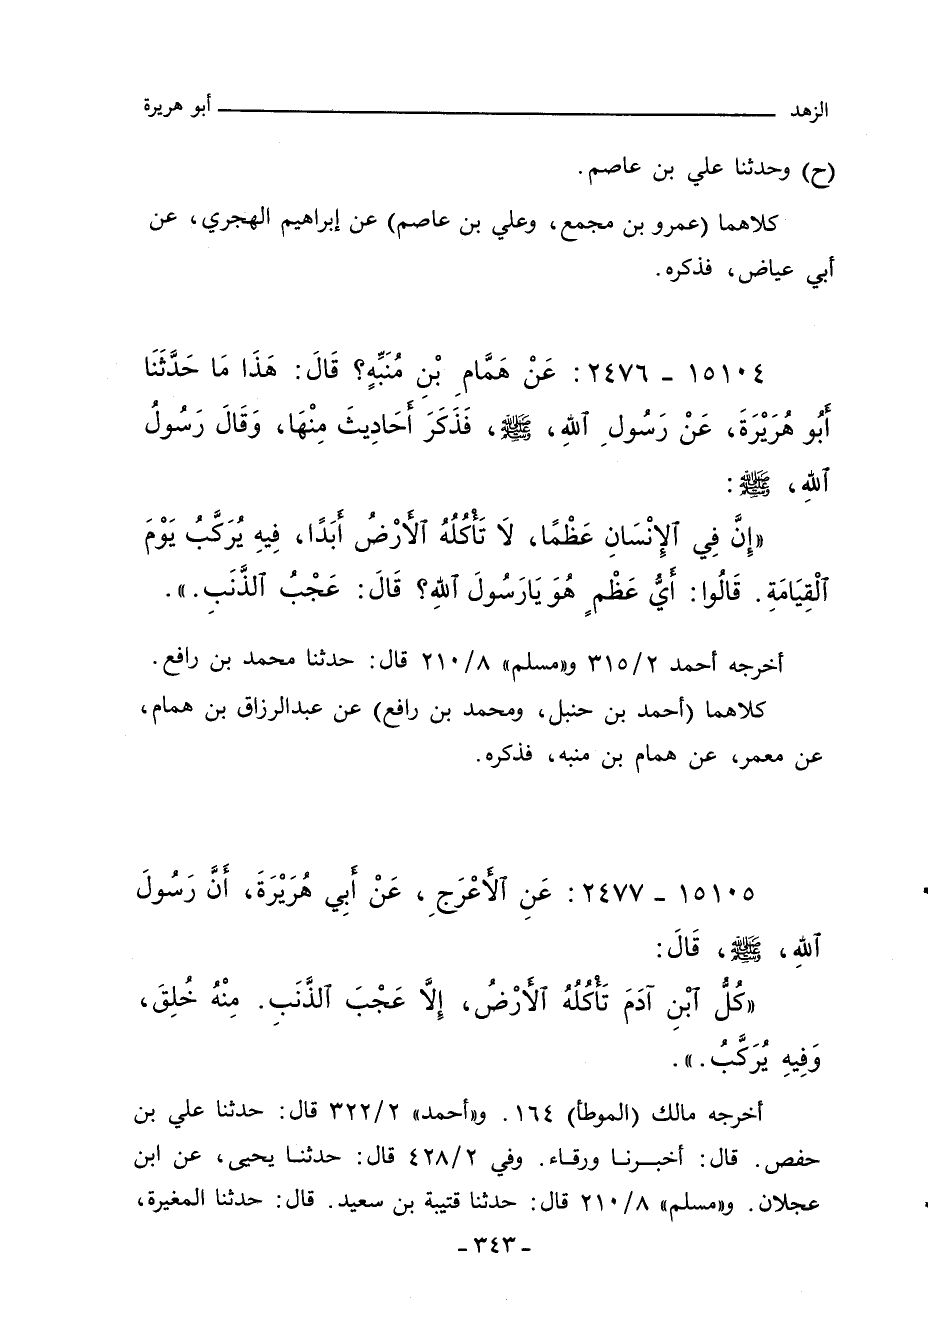 الزهد ـــــــ أبو هريرة
(ح) وحدثنا علي بن عاصم.
كلاهما (عمرو بن مجمع، وعلي بن عاصم) عن إبراهيم الهجري، عن
أبي عياض، فذكره.
١٥١٠٤ ـ ٢٤٧٦: عَنْ هَمَّامِ بْنِ مُنَبِّهٍ؟ قَالَ: هَذَا مَا حَدَّثَنَا
أَبُو هُرَيْرَةَ، عَنْ رَسُولِ ٱللهِ، ﷺ، فَذَكَرَ أَحَادِيثَ مِنْهَا، وَقَالَ رَسُولُ
ٱللهِ، ﷺ:
«إِنَّ فِي ٱلإِنْسَانِ عَظْمًا، لَا تَأْكُلُهُ ٱلأَرْضُ أَبَدًا، فِيهِ يُرَكَّبُ يَوْمَ
ٱلْقِيَامَةِ. قَالُوا: أَيُّ عَظْمٍ هُوَ يَارَسُولَ ٱللهِ؟ قَالَ: عَجْبُ ٱلذَّنَبِ.».
أخرجه أحمد ٣١٥/٢ و«مسلم» ٢١٠/٨ قال: حدثنا محمد بن رافع.
كلاهما (أحمد بن حنبل، ومحمد بن رافع) عن عبدالرزاق بن همام،
عن معمر، عن همام بن منبه، فذكره.
١٥١٠٥ ـ ٢٤٧٧: عَنِ ٱلأَعْرَجِ، عَنْ أَبِي هُرَيْرَةَ، أَنَّ رَسُولَ
ٱللهِ، ﷺ، قَالَ:
«كُلُّ ٱبْنِ آدَمَ تَأْكُلُهُ ٱلأَرْضُ، إِلَّا عَجْبَ ٱلذَّنَبِ. مِنْهُ خُلِقَ،
وَفِيهِ يُرَكَّبُ.».
أخرجه مالك (الموطأ) ١٦٤. و«أحمد» ٣٢٢/٢ قال: حدثنا علي بن
حفص. قال: أخبرنا ورقاء. وفي ٤٢٨/٢ قال: حدثنا يحيى، عن ابن
عجلان. و«مسلم» ٢١٠/٨ قال: حدثنا قتيبة بن سعيد. قال: حدثنا المغيرة،
ـ ٣٤٣ ـ